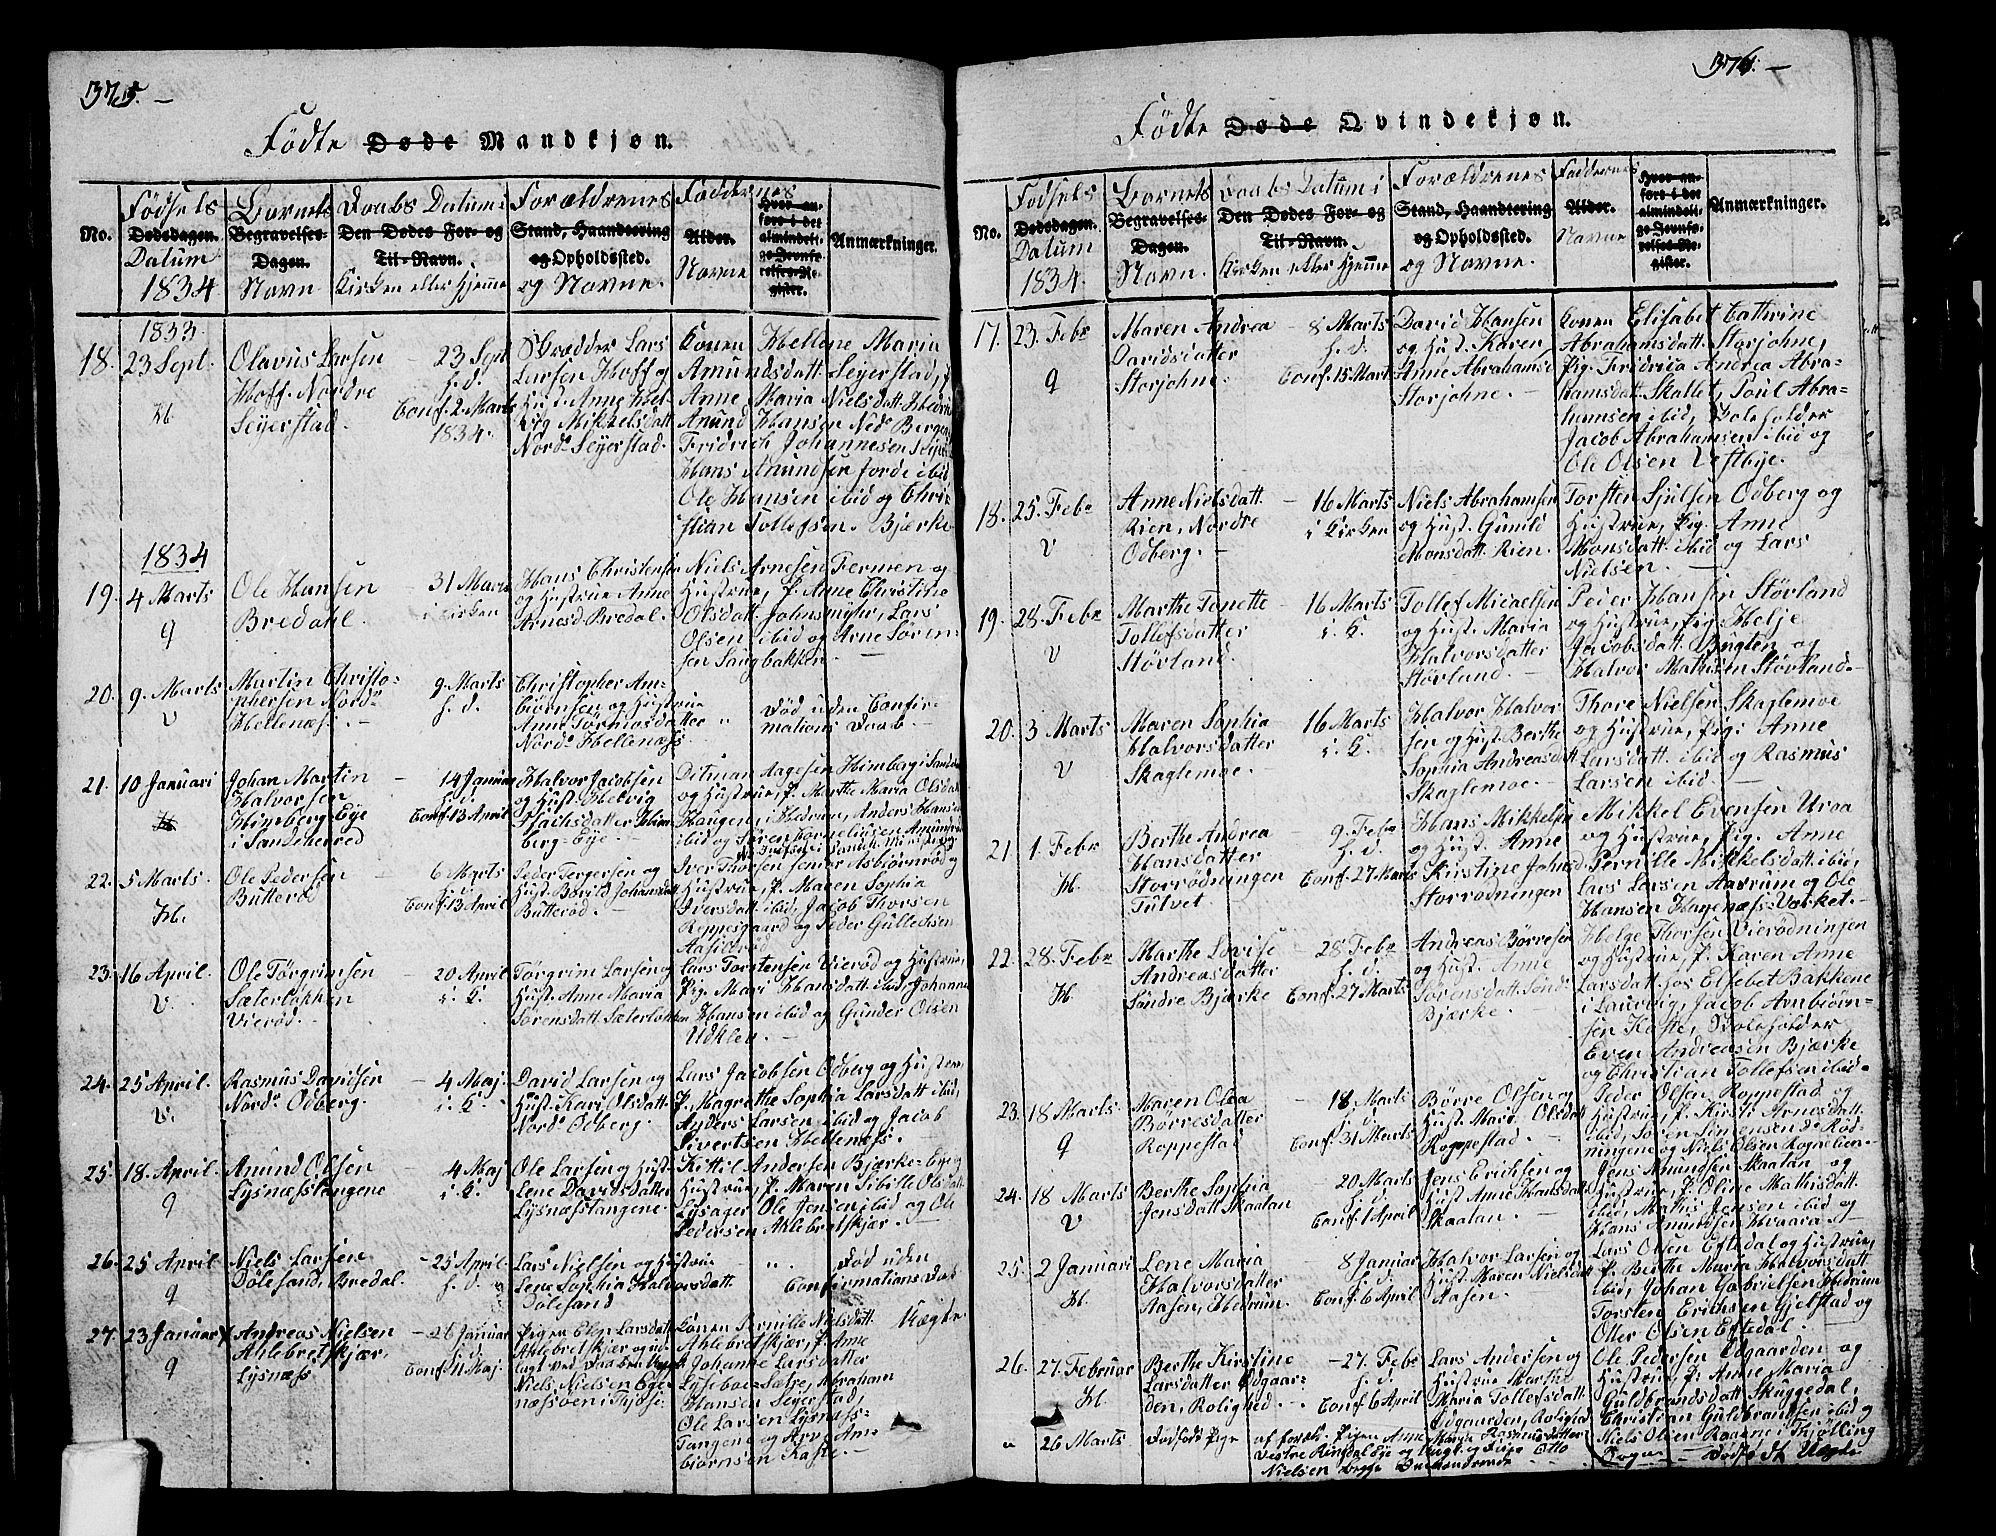 375. —
Födte Døde Mandkjøn.
No.
Födsels
Dødsdagen.
Datum
1834
Barnets
Begravelses-
Dagen.
Navn
Daabs Datum i
Den Dødes For- og
Til-Navn.
Kirken eller Hjemme
Forældrenes
Stand, Haandtering
og Opholdssted.
og Navne.
Faddernes
Alder.
Navne
Hvor an-
føre i det
almindeli-
ge Jevnfø-
relses-Re-
gister.
Anmærkninger.
1833
18. 23 Sept.
H
Olavus Larsen
Hoff. Nordre
Seyerstad.
23 Sept
h. d.
Conf. 2 Marts
1834.
Skrædder Lars
Larsen Hoff og
Hust. Anne Hel-
vig Mikkelsdatt
Nord. Seyerstad.
Konen Hellene Maria
Amundsdatt. Seyerstad, P.
Anne Maria Nielsdatt. Hedrum
Anund Hansen Ned. Berge
Fridrich Johannesen Seyerst
Hans Anundsen Jorde ibid
Ole Hansen ibid og Chri-
stian Tollefsen. Bjerke
1834
19. 4 Marts
9
Ole Hansen
Bredahl.
- 31 Marts
i Kirken
Hans Christensen
og Hustrue Anne
Arnesd. Bredal.
Niels Arnesen Fermen og
Hustrue, P. Anne Christine
Olsdatt. Johnsmyhr, Lars
Olsen ibid og Arne Sören-
sen Saugbakken. —
20. 9. Marts
V
Martin Christo-
phersen Nord.
Hellenæss. —
9. Marts
h. d.
Christopher Am-
biörnsen og Hustrue
Anne Tormodsdatter
Nord. Hellenæss
"
Död uden Confir-
mations Daab. —
21. 10 Januari
H
Johan Martin
Halvorsen
Himberg-Eye
i Sandeherred
- 14 Januar
h. d.
Conf. 13 April
Halvor Jacobsen
og Hust. Helvig
Isachsdatter Him-
berg-Eye. —
Ditman Aagesen Himberg i Sandeh
og Hustrue, P. Marthe Maria Olsdatt
Haugen i Hedrum, Anders Hansen
ibid og Sören Cornelius Amundröd
22. 5 Marts.
H.
Ole Pedersen
Butteröd
- 6 Marts
h. d.
Conf. 13 April
Peder Torgersen og
Hust. Borild Johansdatt
Butteröd. —
Iver Thorsen söndre Asbiörnröd og
Hustrue, P. Maren Sophia
Iversdatt ibid, Jacob Thorsen
Roppesgaard og Peder Gulleiksen
Aasilderöd
23. 16 April.
V.
Ole Törgrimsen
Sæterløkken
Vieröd. —
20 April
i. K.
Törgrim Larsen og
Hust. Anne Maria
Sörensdatt. Sæterløkken
Lars Torstensen Vieröd og Hustrue
Pig. Mari Hansdatt ibid, Johannes
Hansen ibid og Gunder Olsen
Udklev. —
24. 25 April.
V.
Rasmus Davidsen
Nord. Odberg.
- 4 Maj.
i. K.
David Larsen og
Hust. Kari Olsdatt.
Nord. Odberg.
Lars Jacobsen Odberg og Hustrue
P. Magrethe Sophia Larsdatt ibid,
Anders Larsen ibid og Jacob
Sivertsen Hellenæss. —
25. 18. April.
9
Anund Olsen
Lysnæsstangene
- 4 Maj
i. K.
Ole Larsen og Hust.
Lene Davidsdatter
Lysnæsstangene.
Kittil Andersen Bjerke-Eye og
Hustrue, P. Maren Sibille Olsdatt
Lysager Ole Jensen ibid og Ole
Pedersen Ahlebretskjær. —
26. 25 April
9
Niels Larsen
Dölesand, Bredal.
- 25 April
h. d.
Lars Nielsen og Hustrue
Lene Sophia Halvorsdatt
Dölesand
"
Död uden
Confirmations Daab
27. 23 Januar
9
Andreas Nielsen
Ahlebretskjær,
Lysnæss
- 26 Januar
h. d.
Conf. 11 Maj.
Pigen Elen Larsdatt
Ahlebretskjær og ud-
lagt ved Daaben
Niels Nielsen Eye-
næssveen i Thjöse.
Konen Pernille Nielsdatt.
Ahlebretskjær, P. Anne
Johanne Larsdatter
Lyseboe-Sætre, Abraham
Hansen Seyerstad,
Ole Larsen Lysnæss-
Tangene og Arve Am-
biörnsen Kaste. —
Uægte.
376. —
Födte Døde Qvindekjøn.
No.
Födsels
Dødsdagen.
Datum
1834.
Barnets
Begravelses-
Dagen.
Navn.
Daabs Datum i
Den Dødes For- og
Til-Navn.
Kirken eller Hjemme
Forældrenes
Stand, Haandtering
og Opholdssted.
og Navne.
Faddernes
Alder.
Navne
Hvor an-
føre i det
almindeli-
ge Jevnfø-
relses-Re-
gister.
Anmærkninger.
17. 23. Febr
9
Maren Andrea
Davidsdatter
Storjohne.
- 8 Marts
h. d.
Conf. 15 Marts
David Hansen
og Hust. Karen
Anne Abrahamsd
Storjohne. —
Konen Elisabet Cathrine
Abrahamsdatt. Storjohne,
Pig. Fridricia Andrea Abra-
hamsdatt. Skallet, Poul Abra-
hamsen ibid, Boleholder
Jacob Abrahamsen ibid og
Ole Olsen Vestbye.
18. 25. Febr
V
Anne Nielsdatt.
Rien, Nordre
Odberg. —
- 16 Marts
i Kirken
Niels Abrahamsen
og Hust. Gunild
Monsdatt. Rien.
Torsten Sjulsen Odberg og
Hustrue, Pig. Anne
Monsdatt. ibid og Lars
Nielsen. —
19. 28. Febr
V
Marthe Tonette
Tollefsdatter
Störland.
- 16 Marts
i. K.
Tollef Micaelsen
og Hust. Maria
Halvorsdatter
Störland.
Peder Hansen Störland
og Hustrue, Pig. Helje
Jacobsdatt. Buglen og
Halvor Mathisen Störland. —
20. 3 Marts
V
Maren Sophia
Halvorsdatter
Skaglemoe.
16 Marts
i. K.
Halvor Halvor
sen og Hust. Berthe
Sophia Andreasdatt
Skaglemoe.
Thore Nielsen Skaglemoe
og Hustrue, Pig. Anne
Larsdatt. ibid og Rasmus
Larsen ibid. —
21 1. Febr
H.
Berthe Andrea
Hansdatter
Storrödningen
Tulvet
- 9 Febr
h. d.
Conf. 27 Marts
Hans Mikkelsen
og Hust. Anne
Kirstine Johnsd
Storrodningen
Mikkel Evensen Uroa
og Hustrue, Pig. Anne
Pernille Mikkelsdatt. ibid,
Lars Larsen Aasrum og Ole
Hansen Hagenæss-Værket. —
22. 28. Febr
H.
Marthe Lovise
Andreasdatter
Söndre Bjerke
28 Febr
h. d.
Conf. 27 Marts
Andreas Börresen
og Hust. Anne
Sörensdatt. Sönd
Bjærke.
Helge Thorsen Vierödningen
og Hustrue, P. Karen Anne
Larsdatt. hos Elsebet Bakkene
i Laurvig, Jacob Ambiörn-
sen Kaste, Boleholder
Even Andreasen Bjærke
og Christian Tollefsen ibid. —
23. 18 Marts
9
Maren Olea
Börresdatter
Roppestad
- 18 Marts
h. d.
Conf. 31 Marts
Börre Olsen og
Hust. Mari Olsdatt
Roppestad. —
Peder Olsen, Roppestad og
Hustrue, P. Kirsti Arnesdatt.
ibid, Sören Simensen de Röd-
ningene og Niels Olsen
24. 18 Marts
V
Berthe Sophia
Jensdatt Skaatan
- 20 Marts
h. d.
Conf. 1 April
Jens Erichsen og
Hust. Anne Hansdatt
Skaatan. —
Jens Amundsen Skaatan og
Hustrue, P. Oline Mathisdatt.
ibid, Mathis Jensen ibid og
Hans Amundsen Hvaara. —
25. 2 Januari
H.
Lene Maria
Halvorsdatter
Aasen, Hedrum.
- 8 Januar
h. d.
Conf. 6 April
Halvor Larsen og
Hust. Maren Nielsdatt
Aasen.
Lars Olsen Eftedal og Hustrue,
P. Berthe Maria Halvorsdatt.
ibid, Johan Gabrielsen Hedrum
Torsten Erichsen Gjelstad og
Otter Olsen Eftedal.
26. 27. Februar
H.
Berthe Kirstine
Larsdatter Odgaar-
den, Rolighed.
- 27. Febr
h. d.
Conf. 6 April
Lars Andersen og
Hustrue Marthe
Maria Tollefsdatt.
Odgaarden, Rolighed
Ole Pedersen Odgaarden og
Hustrue, P. Anne Maria
Guldbrandsdatt. Skuggedal,
Christian Guldbrandsen ibid og
Niels Olsen Raane i Thjölling
Sogn —
" 26 Marts
Dödfödt Pige
af foræl. Pigen Anne Marie Rasmusdatter
Vestre Ringdal Eye og Otto
Nielsen begge
— Dødfödt Uægte